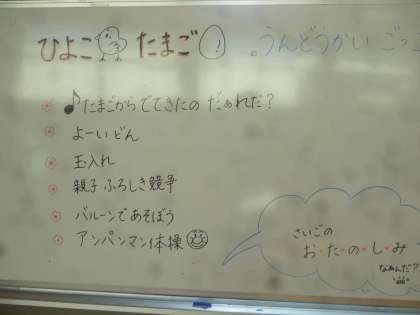 ひよこ たまご ! 。うんどうかい ごっこ
♪たまごからでてきたの だぁれだ?
よーいどん
玉入れ
親子 ふろしき競争
バルーンであそぼう
アンパンマン体操
さいごの
お・た・の・し・み
なぁんだ?